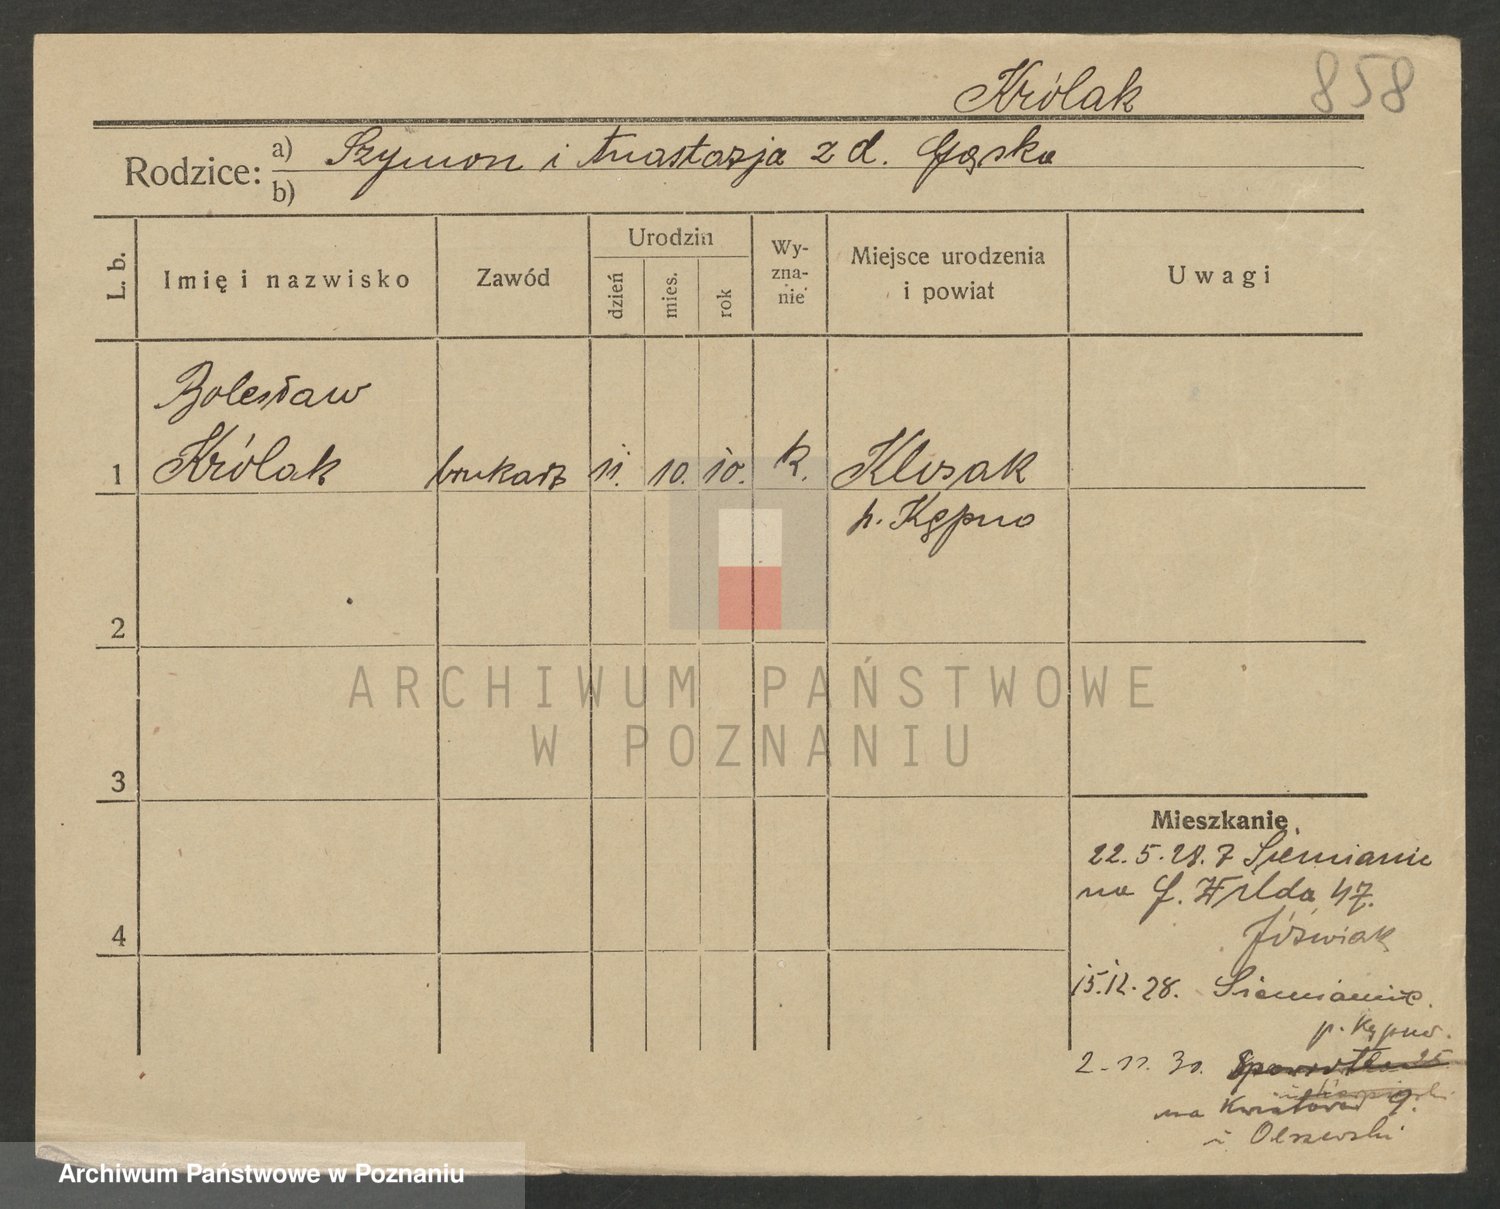 Królak
858
Rodzice: a) Szymon i Anastazja z d. Gąska
b)
L. b.
Imię i nazwisko
Zawód
Urodzin
dzień
mies.
rok
Wy-
zna-
nie
Miejsce urodzenia
i powiat
Uwagi
Bolesław
1 Królak brukarz 11. 10. 10. k. Klosak
p. Kępno
2
3
4
Mieszkanie
22.5.28. z Siemianic
na G. Wilda 47.
Jóźwiak
15.12.28. Siemianic.
p. Kępno.
2.11.30.
na Kwiatowa 9.
u Olszewski
ARCHIWUM PAŃSTWOWE
W POZNANIU
Archiwum Państwowe w Poznaniu